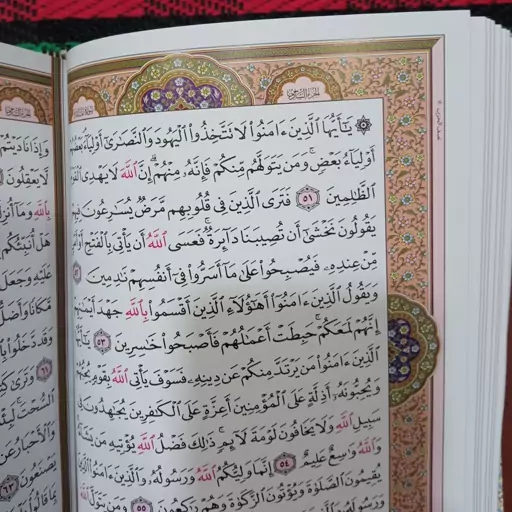 ۞ يَٰٓأَيُّهَا ٱلَّذِينَ ءَامَنُوا۟ لَا تَتَّخِذُوا۟ ٱلْيَهُودَ وَٱلنَّصَٰرَىٰٓ أَوْلِيَآءَ بَعْضُهُمْ
أَوْلِيَآءُ بَعْضٍ ۚ وَمَن يَتَوَلَّهُم مِّنكُمْ فَإِنَّهُۥ مِنْهُمْ ۗ إِنَّ ٱللَّهَ لَا يَهْدِى ٱلْقَوْمَ
ٱلظَّٰلِمِينَ ٥١ فَتَرَى ٱلَّذِينَ فِى قُلُوبِهِم مَّرَضٌ يُسَٰرِعُونَ فِيهِمْ
يَقُولُونَ نَخْشَىٰٓ أَن تُصِيبَنَا دَآئِرَةٌ ۚ فَعَسَى ٱللَّهُ أَن يَأْتِىَ بِٱلْفَتْحِ أَوْ أَمْرٍ
مِّنْ عِندِهِۦ فَيُصْبِحُوا۟ عَلَىٰ مَآ أَسَرُّوا۟ فِىٓ أَنفُسِهِمْ نَٰدِمِينَ ٥٢
وَيَقُولُ ٱلَّذِينَ ءَامَنُوٓا۟ أَهَٰٓؤُلَآءِ ٱلَّذِينَ أَقْسَمُوا۟ بِٱللَّهِ جَهْدَ أَيْمَٰنِهِمْ
إِنَّهُمْ لَمَعَكُمْ ۚ حَبِطَتْ أَعْمَٰلُهُمْ فَأَصْبَحُوا۟ خَٰسِرِينَ ٥٣ يَٰٓأَيُّهَا
ٱلَّذِينَ ءَامَنُوا۟ مَن يَرْتَدَّ مِنكُمْ عَن دِينِهِۦ فَسَوْفَ يَأْتِى ٱللَّهُ بِقَوْمٍ يُحِبُّهُمْ
وَيُحِبُّونَهُۥٓ أَذِلَّةٍ عَلَى ٱلْمُؤْمِنِينَ أَعِزَّةٍ عَلَى ٱلْكَٰفِرِينَ يُجَٰهِدُونَ فِى
سَبِيلِ ٱللَّهِ وَلَا يَخَافُونَ لَوْمَةَ لَآئِمٍ ۚ ذَٰلِكَ فَضْلُ ٱللَّهِ يُؤْتِيهِ مَن يَشَآءُ ۚ
وَٱللَّهُ وَٰسِعٌ عَلِيمٌ ٥٤ إِنَّمَا وَلِيُّكُمُ ٱللَّهُ وَرَسُولُهُۥ وَٱلَّذِينَ ءَامَنُوا۟ ٱلَّذِينَ
يُقِيمُونَ ٱلصَّلَوٰةَ وَيُؤْتُونَ ٱلزَّكَوٰةَ وَهُمْ رَٰكِعُونَ ٥٥ وَمَن يَتَوَلَّ ٱللَّهَ
وَرَسُولَهُۥ
وَإِذَا نَادَيْتُمْ
لَّا يَعْقِلُونَ
بِٱللَّهِ وَمَآ أُنزِلَ
هَلْ أُنَبِّئُكُم
عَلَيْهِ وَجَعَلَ
مَّكَانًا وَأَضَلُّ
وَقَد دَّخَلُوا۟
٦١ وَتَرَىٰ
ٱلسُّحْتَ ۚ
وَٱلْأَحْبَارُ عَن
يَصْنَعُونَ ٦٣
بِمَا قَالُوا۟